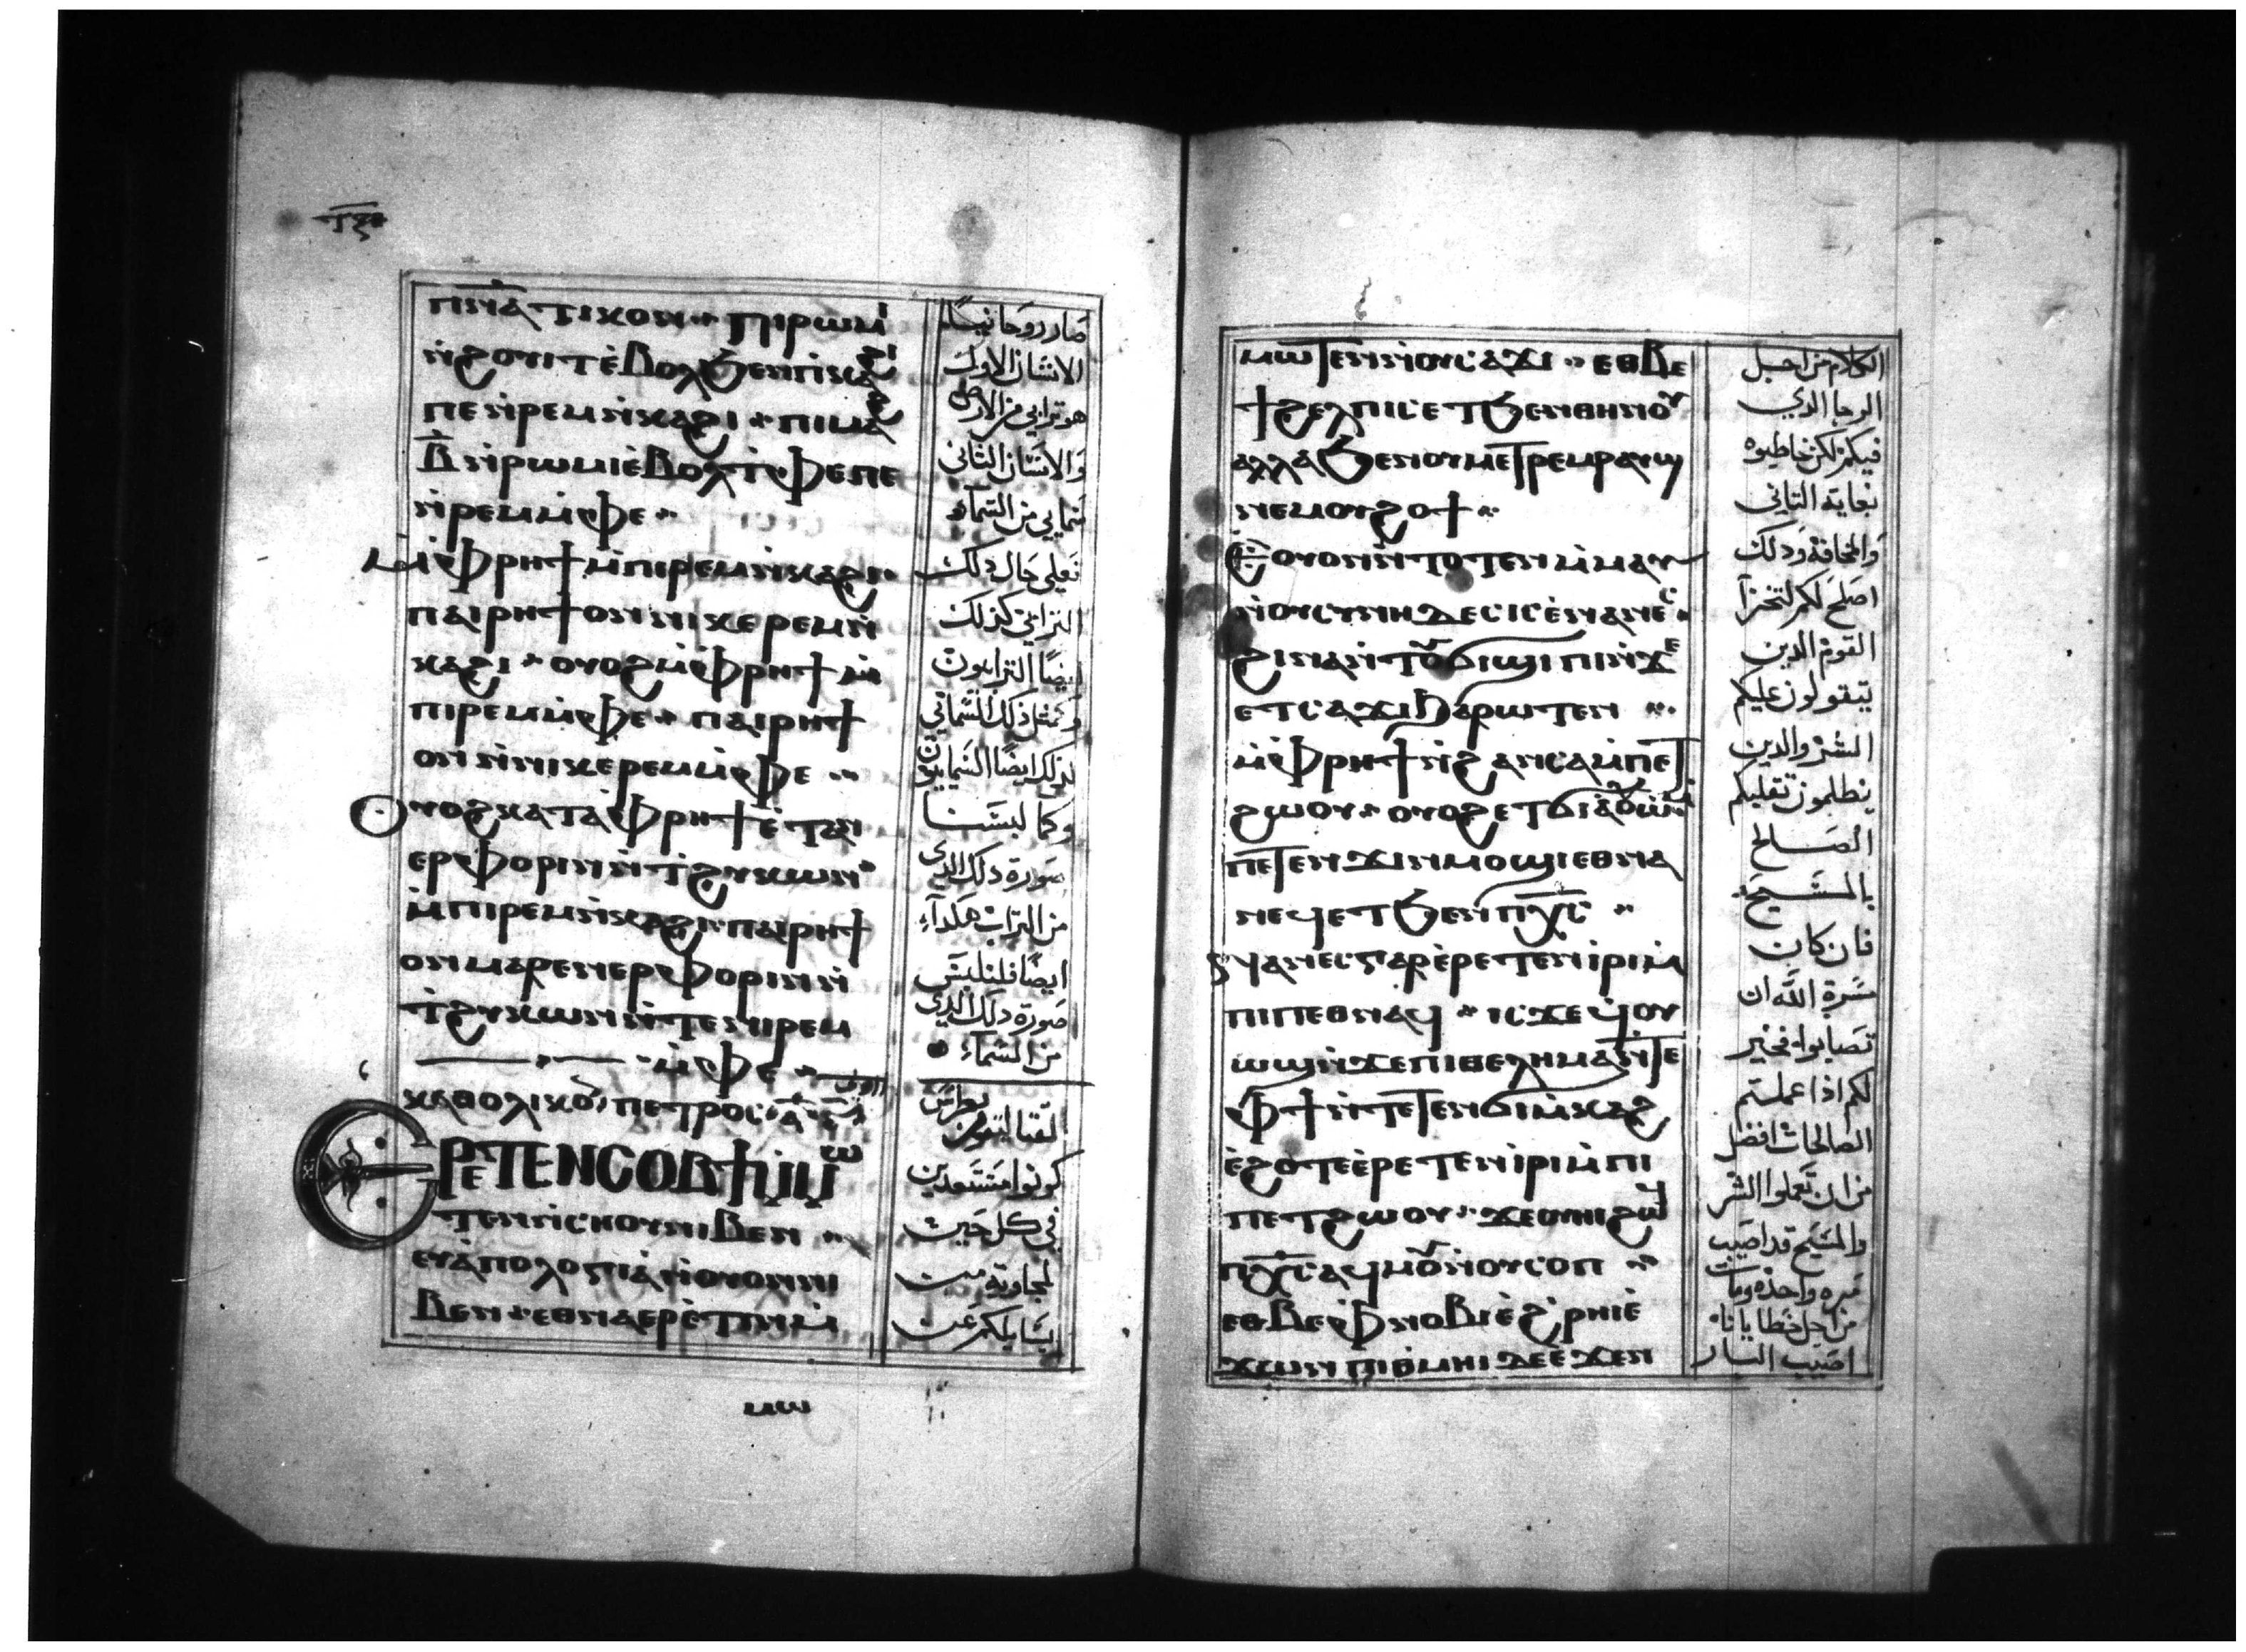 ⲠⲚ̅Ⲁ̅ⲦⲒⲔⲞⲚ ⁘ ⲠⲒⲢⲰⲘⲒ
ⲛ̀ϩⲟⲩⲓⲧ ⲉ̀ⲃⲟⲗϧⲉⲛⲡⲓⲕⲁϩⲓ
ⲡⲉ ⲛ̀ⲣⲉⲙⲛ̀ⲕⲁϩⲓ ⁘ ⲡⲓⲙⲁϩ
ⲃ̅ ⲛ̀ⲣⲱⲙⲓ ⲉ̀ⲃⲟⲗⲧ̀ⲫⲉ ⲡⲉ
ⲛ̀ⲣⲉⲙⲙ̀ⲫⲉ ⁘
ⲙ̀ⲫⲣⲏϯ ⲙ̀ⲡⲓⲣⲉⲙⲛ̀ⲕⲁϩⲓ
ⲡⲁⲓⲣⲏϯ ⲟⲛ ⲛⲓⲕⲉⲣⲉⲙⲛ̀
ⲕⲁϩⲓ ⁘ ⲟⲩⲟϩ ⲙ̀ⲫⲣⲏϯ ⲙ̀
ⲡⲓⲣⲉⲙⲙ̀ⲫⲉ ⁘ ⲡⲁⲓⲣⲏϯ
ⲟⲛ ⲛ̀ⲛⲓⲕⲉⲣⲉⲙⲙ̀ⲫⲉ ⁘
ⲟⲩⲟϩ ⲕⲁⲧⲁ̀ⲫⲣⲏϯ ⲉ̀ⲧⲁⲛ
ⲉⲣⲫⲟⲣⲓⲛ ⲛ̀ⲧ̀ϩⲩⲕⲱⲛ
ⲙ̀ⲡⲓⲣⲉⲙⲛ̀ⲕⲁϩⲓ ⲡⲁⲓⲣⲏϯ
ⲟⲛ ⲙⲁⲣⲉⲛⲉⲣⲫⲟⲣⲓⲛ ⲛ̀
ⲧ̀ϩⲩⲕⲱⲛ ⲛ̀ⲧⲉⲡⲓⲣⲉⲙ
ⲙ̀ⲫⲉ ⁘
ⲕⲁⲑⲟⲗⲓⲕⲟⲛ ⲡⲉⲧⲣⲟⲥ ⲁ̅
ⲈⲢⲈⲦⲈⲚⲤⲞⲂϮ ⲘⲘⲰ
ⲧⲉⲛ ⲛ̀ⲥⲏⲟⲩ ⲛⲓⲃⲉⲛ ⁘
ⲉⲩⲁ̀ⲡⲟⲗⲟⲅⲓⲁ̀ ⲛ̀ⲟⲩⲟⲛ ⲛⲓ
ⲃⲉⲛ ⲉⲑⲛⲁⲉⲣⲉ̀ⲧⲓⲛ ⲙ̀
ⲙⲱ
صار روحانيًا
الانسان الاول
هو ترابي من الارض
والانسان الثاني
سمايي من السماء
فعلى حال ذلك
الترابي كذلك
ايضًا الترابيون
وكمثل ذلك السمائي
كذلك ايضًا السماييون
وكما لبسنا
صورة ذلك الذي
من التراب هكذا
ايضًا فلنلبس
صورة ذلك الذي
من السماء
كونوا مستعدين
في كل حين
لمجاوبة من
يسايلكم عن
ⲙⲱⲧⲉⲛ ⲛ̀ⲟⲩⲥⲁϫⲓ ⁘ ⲉⲑⲃⲉ
ϯϩⲉⲗⲡⲓⲥ ⲉⲧϧⲉⲛⲑⲏⲛⲟⲩ
ⲁⲗⲗⲁ ϧⲉⲛⲟⲩⲙⲉⲧⲣⲉⲙⲣⲁⲩϣ
ⲛⲉⲙⲟⲩϩⲟϯ ⁘
ⲉⲟⲩⲟⲛⲛ̀ⲧⲟⲧⲉⲛ ⲙ̀ⲙⲁⲩ
ⲛ̀ⲟⲩⲥⲩⲛⲏⲇⲉⲥⲓⲥ ⲉ̀ⲛⲁⲛⲉⲥ
ϩⲓⲛⲁ ⲛ̀ⲧⲟⲩϭⲓϣⲓⲡⲓ ⲛ̀ϫⲉ
ⲉⲧⲥⲁϫⲓ ϧⲁⲣⲱⲧⲉⲛ ⁘
ⲙ̀ⲫⲣⲏϯ ⲛ̀ϩⲁⲛⲥⲁⲙ̀ⲡⲉⲧ
ϩⲱⲟⲩ ⁘ ⲟⲩⲟϩ ⲉⲧϭⲓⲁ̀ⲟⲩⲱ
ⲡⲉⲧⲉⲛϫⲓⲛⲙⲟϣⲓ ⲉⲑⲛⲁ
ⲛⲉϥ ⲉⲧϧⲉⲛ ⲡⲭ̅ⲥ̅ ⁘
ⲅⲁⲣ ⲉ̀ⲣⲉⲧⲉⲛⲓⲣⲓ ⲙ̀
ⲡⲓⲡⲉⲑⲛⲁⲛⲉϥ ⁘ ⲓⲥϫⲉ ϥ̀ⲟⲩ
ⲱϣ ⲛ̀ϫⲉⲡⲓⲑⲉⲗⲏⲙⲁ ⲛ̀ⲧⲉ
ⲫϯ ⲛ̀ⲧⲉⲧⲉⲛϭⲓⲙ̀ⲕⲁϩ
ⲉ̀ϩⲟⲧⲉ ⲉ̀ⲣⲉⲧⲉⲛⲓⲣⲓ ⲙ̀ⲡⲓ
ⲡⲉⲧϩⲱⲟⲩ ⁘ ϫⲉⲟⲩⲏⲓ ϩⲱϥ
ⲡⲭ̅ⲥ̅ ⲁϥⲙⲟⲩ ⲛ̀ⲟⲩⲥⲟⲡ ⁘
ⲉⲑⲃⲉ ⲫⲛⲟⲃⲓ ⲉ̀ϩ̀ⲣⲏⲓ ⲉ̀
ϫⲱⲛ ⲡⲓⲑ̀ⲙⲏⲓ ⲇⲉ ⲉ̀ϫⲉⲛ
الكلام من اجل
الرجا الذي
فيكم لكن خاطبوه
بغاية التاني
والمخافة وذلك
اصلح لكم لتخزا
القوم الذين
يتقولون عليكم
الشر والذين
يظلمون تقلبكم
الصالح
بالمسيح
فان كان
مسرة الله ان
تصابوا فخير
لكم اذا عملتم
الصالحات افضل
من ان تعملوا الشر
والمسيح قد اصيب
مره واحده ومات
من اجل خطايانا
اصيب البار